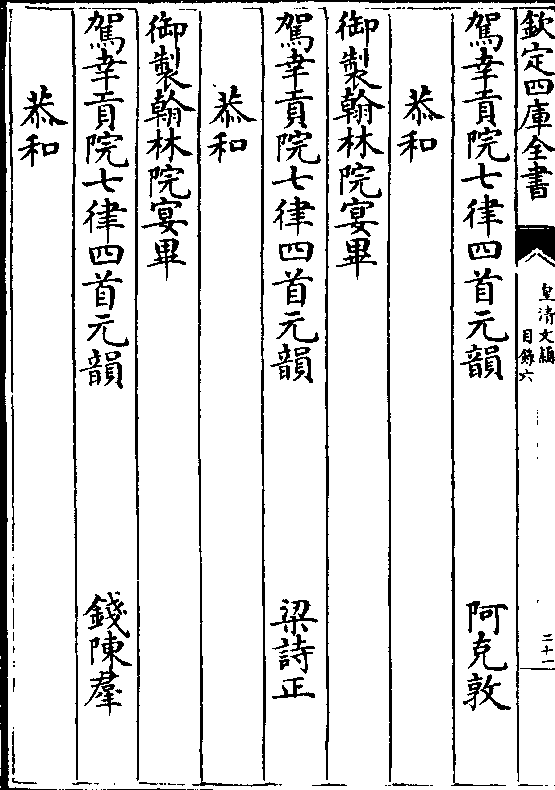 欽定四庫全書
皇清文穎
目錄六
三十一
駕幸貢院七律四首元韻 阿克敦
恭和
御製翰林院宴畢
駕幸貢院七律四首元韻 梁詩正
恭和
御製翰林院宴畢
駕幸貢院七律四首元韻 錢陳羣
恭和